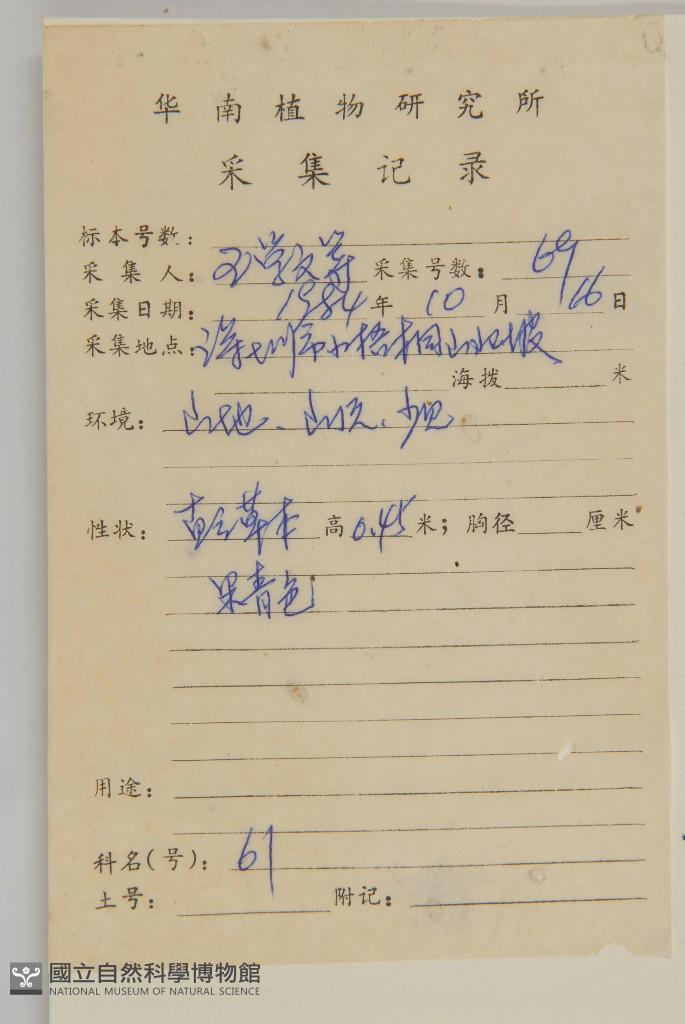 华南植物研究所
采集记录
标本号数:
采集人: 王学文等 采集号数: 69
采集日期: 1984年10月16日
采集地点: 深圳市小梧桐山北坡
海拨 米
环境: 山地、山顶、少见
性状: 直立草本 高0.45米; 胸径 厘米
果青色
用途:
科名(号): 61
土号: 附记:
國立自然科學博物館
NATIONAL MUSEUM OF NATURAL SCIENCE